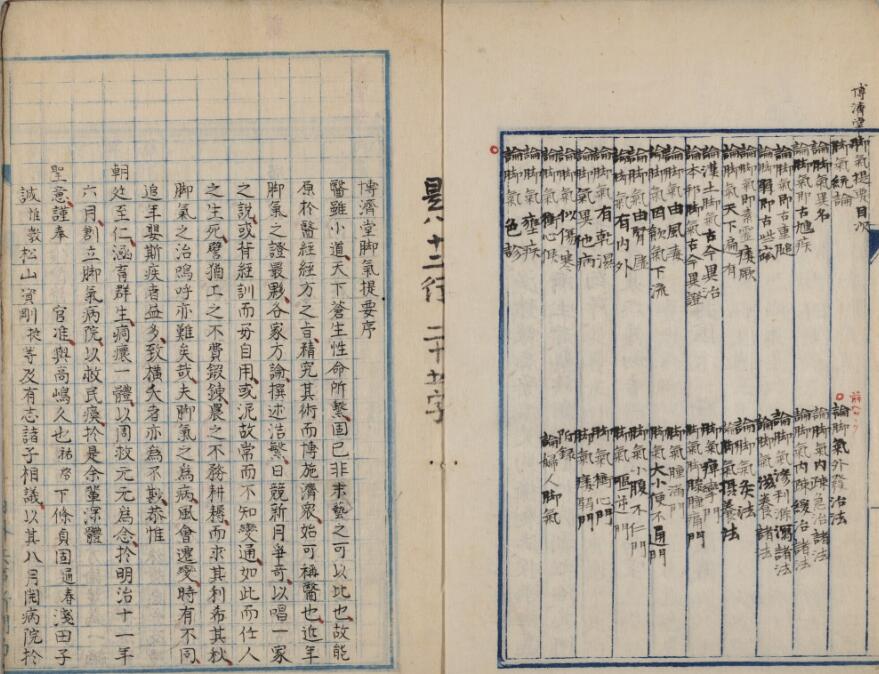 博濟堂脚氣提要目次
脚氣統論
論脚氣異名
論脚氣即古尰疾
論脚氣即古重膇
論脚弱即古
論脚氣即素靈痿厥
論脚氣天下徧有
論漢土脚氣古今異治
論本邦脚氣古今異證
論脚氣由風毒
論脚氣因歊氣下流
論脚氣由腎虚
論脚氣有内外
論脚氣有乾濕
論脚氣異他病
論脚氣似傷寒
論脚氣衝心候
論脚氣壅疾
論脚氣色診
論脚氣外發治法
論脚氣内陳急治諸法
論脚氣内陳緩治諸法
論脚氣滲利瀉諸法
論脚氣滋養諸法
論脚氣灸法
論脚氣摂養法
脚氣痺攣門
脚氣脚膝腫痛門
脚氣腫滿門
脚氣大小便不通門
脚氣小腹不仁門
脚氣嘔逆門
脚氣衝心門
脚氣痿弱門
附録
論婦人脚氣
是ハ十二行 二十字
博濟堂脚氣提要序
醫雖小道天下蒼生性命所繫固已非末藝之可以比也故能
原於醫經經方之旨精究其術而博施濟衆始可稱醫也近年
脚氣之證最夥各家方論撰述浩繁日競新月爭奇以唱一家
之說或背經訓而毋自用或泥故常而不知變通如此而仕人
之生死譬猶工之不費鍜鍊農之不務耕耨而求其利希其秋
脚氣之治嗚呼亦難矣哉夫脚氣之為病風會遷變時有不同
追年嬰斯疾者益多致横夭者亦為不尠恭惟
朝廷至仁涵育群生痌瘝一體以周救元元為念於明治十一年
六月創立脚氣病院以救民瘼於是余輩深體
聖意謹奉 官准與高嶋久也祐啓下條貞固通春淺田子
誠惟歡松山資剛挺等及有志諸子相議以其八月開病院於